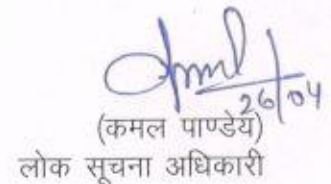 26/04
(कमल पाण्डेय)
लोक सूचना अधिकारी